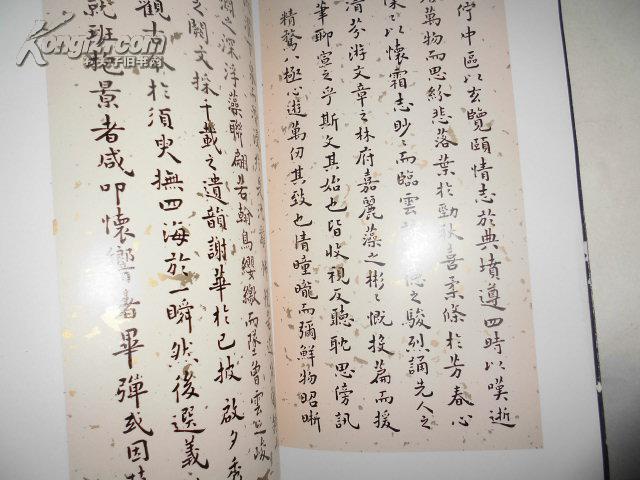 佇中區以玄覽頤情志於典墳遵四時以嘆逝
萬物而思紛悲落葉於勁秋喜柔條於芳春心
以懷霜志眇〻而臨雲德之駿烈誦先人之
清芬游文章之林府嘉麗藻之彬〻慨投篇而援
筆聊宣之乎斯文其始也皆收視反聽耽思傍訊
精騖八極心遊萬仞其致也情曈曨而彌鮮物昭晰
淵之深浮藻聯翩若翰鳥纓繳而墜曾雲之峻
之闕文採千載之遺韻謝華於已披啟夕秀
觀古今於須臾撫四海於一瞬然後選義
就班抱景者咸叩懷響者畢彈或因
Kongfz.com
孔夫子旧书网